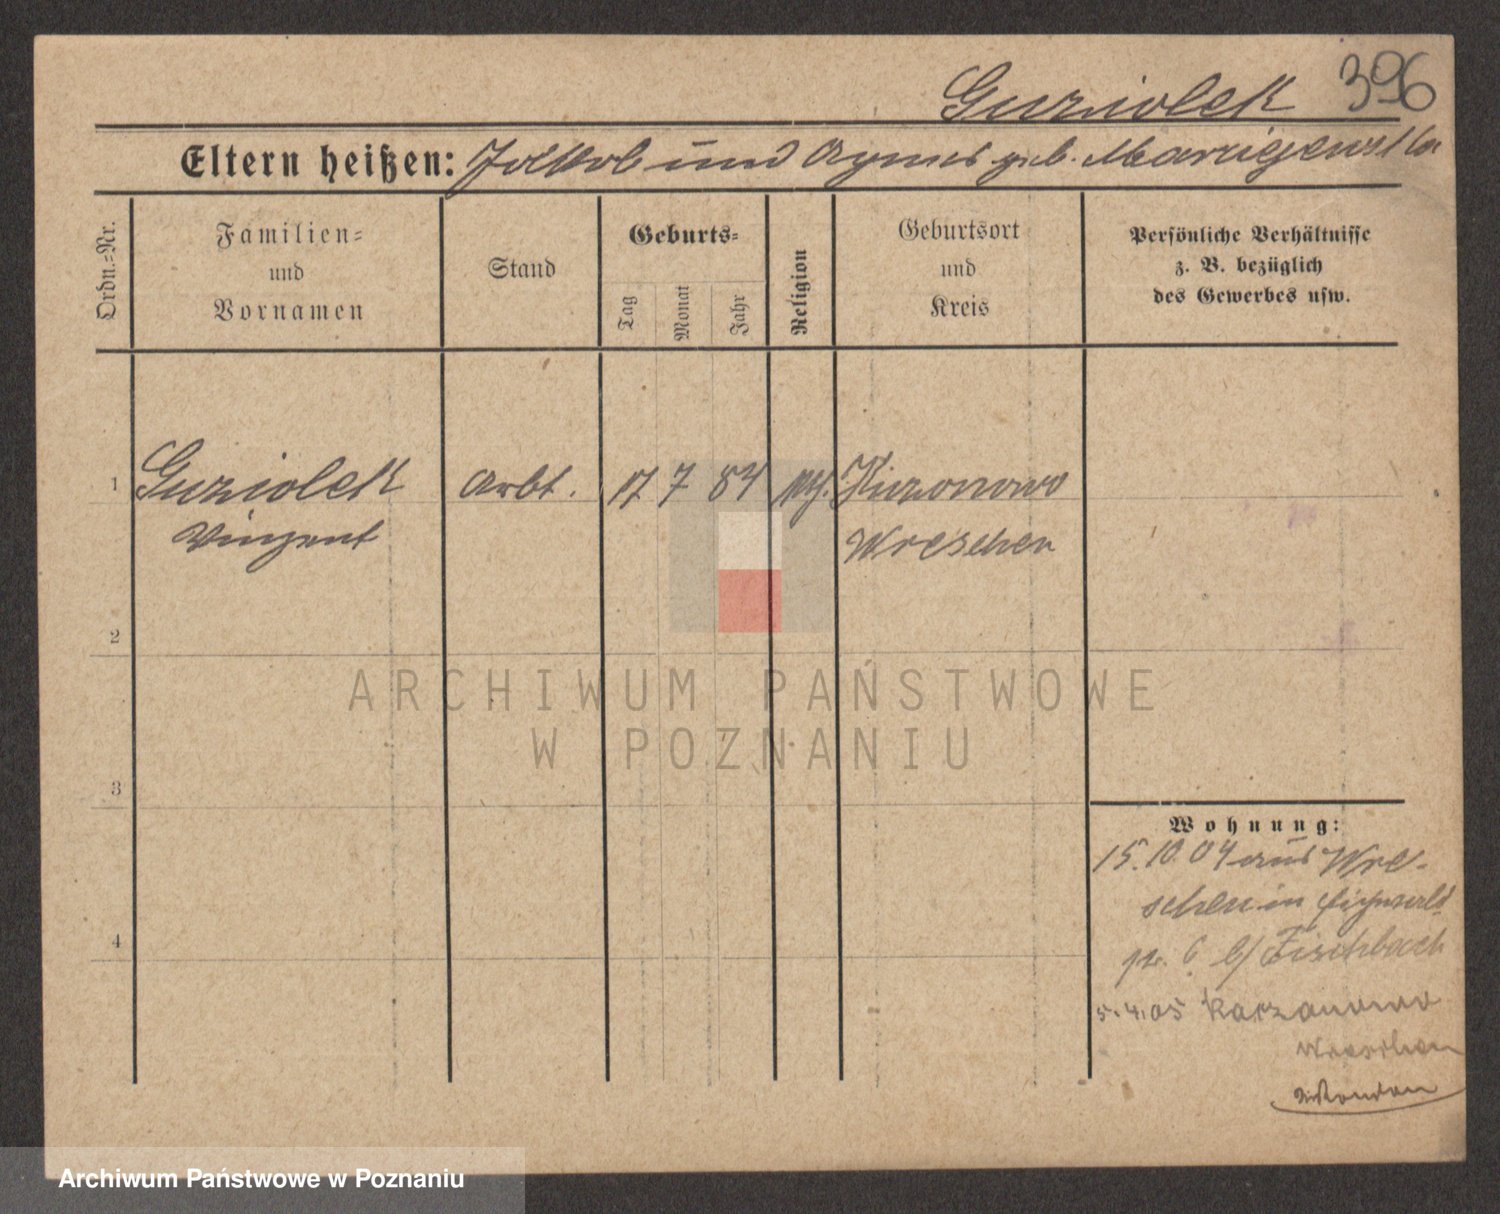 Guziolek 396
Eltern heißen: Jakob und Agnes geb.
Ordn.-Nr.
Familien-
und
Vornamen
Stand
Geburts-
Tag
Monat
Jahr
Religion
Geburtsort
und
Kreis
Persönliche Verhältnisse
z. B. bezüglich
des Gewerbes usw.
1 Guziolek Arbt. 17 7 84
Vinzent Wreschen
2
ARCHIWUM PAŃSTWOWE
W POZNANIU
3
Wohnung:
15.10.04 aus Wre-
schen in
6 b/ Fischbach
4
5.4.05 Karzanowo
Wreschen
Archiwum Państwowe w Poznaniu